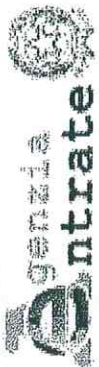 genzia
entrate